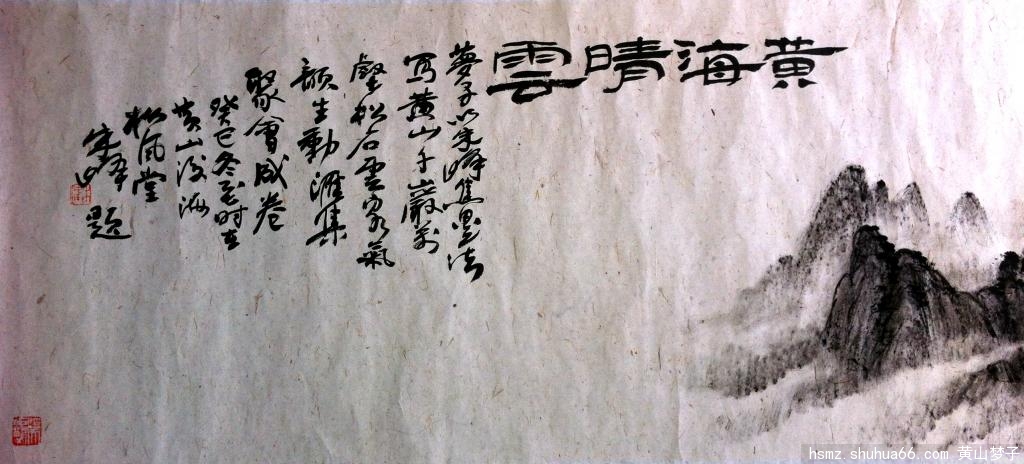 黄海晴雲
夢子以朱峰焦墨法
写黄山千巖萬
壑松石雲泉氣
韻生動漼集
聚會成卷
癸巳冬末时在
黄山後海
松風堂
朱峰 題
hsmz.shuhua66.com 黄山梦子